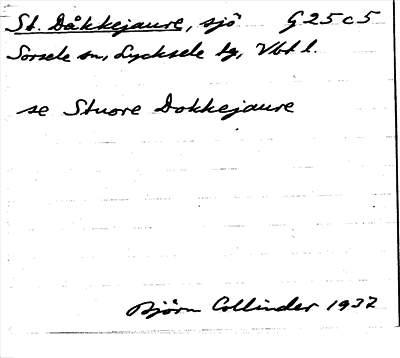 St. Dåkkejaure, sjö G 25 c 5
Sorsele sn, Lycksele lg, Vbtl.
se Stuore Dokkejaure
Björn Collinder 1937